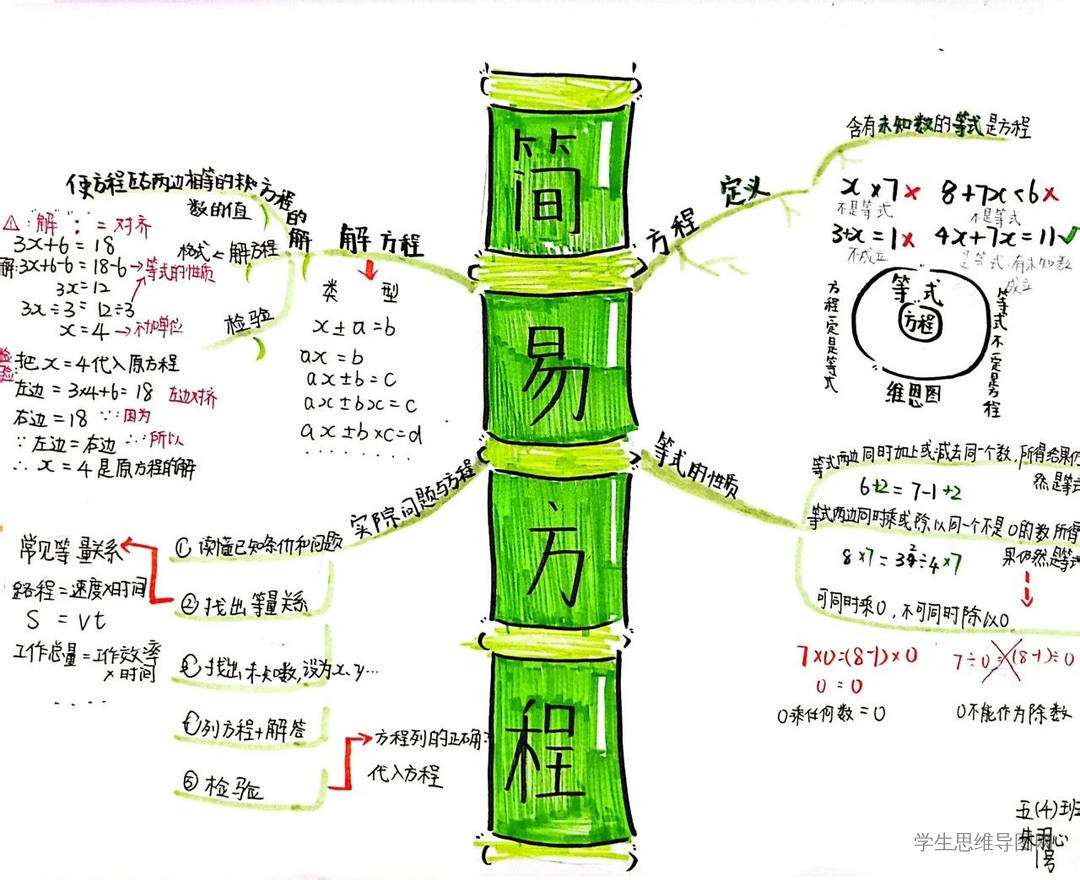 简
易
方
程
方程
定义
含有未知数的等式是方程
x × 7 ×
不是等式
8 + 7x < 6 ×
不是等式
3+x = 1 ×
不成立
4x + 7x = 11 ✓
是等式,有未知数
成立
等式
方程
方程一定是等式
等式不一定是方程
维恩图
等式的性质
等式两边同时加上或减去同一个数,所得结果仍
然是等式
6+2 = 7-1+2
等式两边同时乘或除以同一个不是0的数所得
果仍然是等式
可同时乘0,不可同时除以0
7×0=(8-1)×0
0 = 0
0乘任何数=0
7÷0=(8-1)÷0
0不能作为除数
解方程
类 型
x ± a = b
ax = b
ax ± b = c
ax ± bx = c
ax ± b×c = d
........
方程的解
使方程左右两边相等的未知
数的值
格式 = 解方程
⚠ : 解 ":" = 对齐
3x+6 = 18
解:3x+6-6 = 18-6 → 等式的性质
3x = 12
3x÷3 = 12÷3
x = 4 → 不加单位
检验
检验:把 x = 4 代入原方程
左边 = 3×4+6 = 18 左边对齐
右边 = 18 ∵:因为
∵ 左边 = 右边 ∴:所以
∴ x = 4 是原方程的解
实际问题与方程
① 读懂已知条件和问题
② 找出等量关系
常见等量关系
路程 = 速度×时间
S = vt
工作总量 = 工作效率
×时间
....
找出未知数,设为x、y…
列方程+解答
⑤ 检验
方程列的正确:
代入方程
五(4)班
1号
学生思维导图